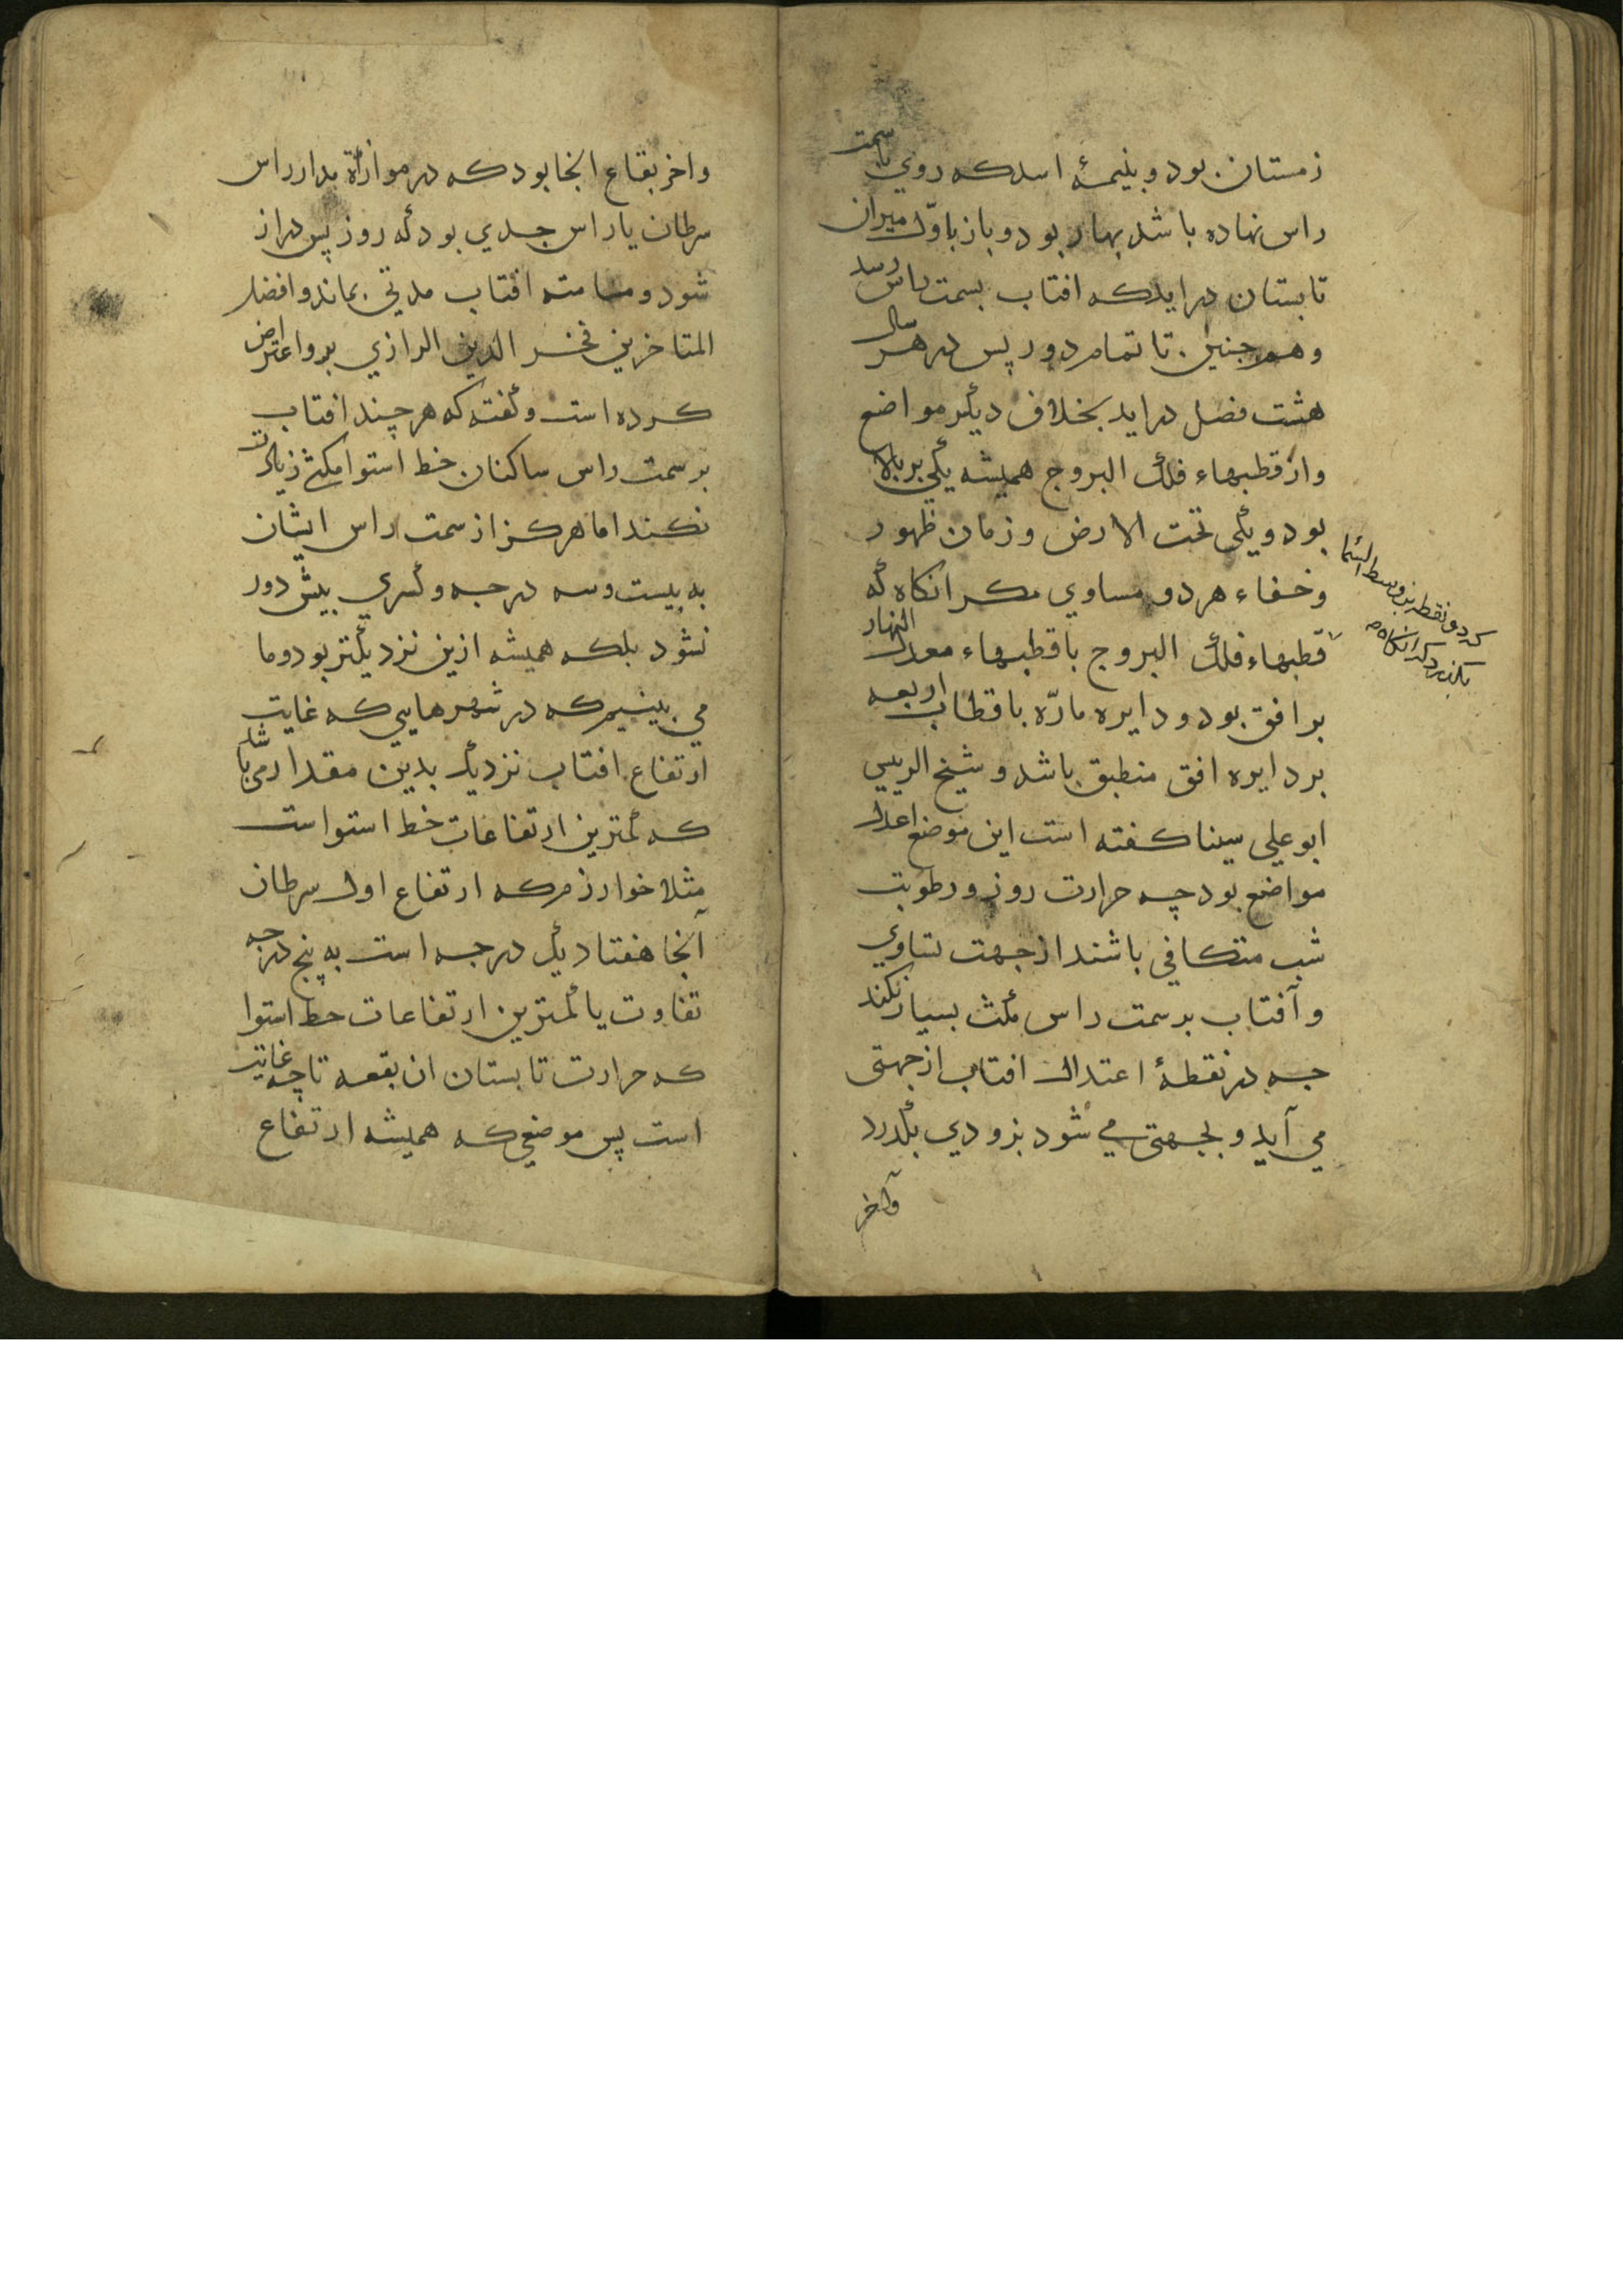 زمستان بود و بنیمهٔ اسد که روی با سمت
راس نهاده باشد بهار بود و باز باوّل میزان
تابستان درآید که افتاب بسمت راس رسد
و همچنین تا تمام دور پس در هر سال
هشت فصل دراید بخلاف دیگر مواضع
و از قطبهاء فلک البروج همیشه یکی بر بالا
بود و یکی تحت الارض و زمان ظهور
و خفاء هر دو مساوی مکر انکاه که
قطبهاء فلک البروج با قطبهاء معدل النهار
بر افق بود و دایره مارّه باقطاب اربعه
بر دایره افق منطبق باشد و شیخ الرییس
ابو علی سینا کفته است این موضع اعدل
مواضع بود چه حرارت روز و رطوبت
شب متکافی باشند از جهت تساوی
و آفتاب بر سمت راس مکث بسیار نکند
چه در نقطهٔ اعتدال افتاب از جهتی
می آید و بجهتی می شود بزودی بگذرد
وآخر
که دو نقطه بر وسط السّما
بگذرد که انکاه
واخر بقاع انجا بود که در موازاة مدار راس
سرطان یا راس جدی بود که روز پس دراز
شود و مسامته افتاب مدتی بماند و افضل
المتاخرین فخر الدین الرازی برو اعتراض
کرده است و کفته که هر چند افتاب
بر سمت راس ساکنان خط استوا مکثی زیادت
نکند اما هرکز از سمت راس ایشان
به بیست و سه درجه و کسری بیش دور
نشود بلکه همیشه ازین نزدیکتر بود و ما
می بینیم که در شهرهایی که غایت
ارتفاع افتاب نزدیک بدین مقدار می باشد
که کمترین ارتفاعات خط استواست
مثلا خوارزم که ارتفاع اول سرطان
آنجا هفتاد یک درجه است به پنج درجه
تفاوت یا کمترین ارتفاعات خط استوا
که حرارت تابستان ان بقعه تا چه غایت
است پس موضعی که همیشه ارتفاع